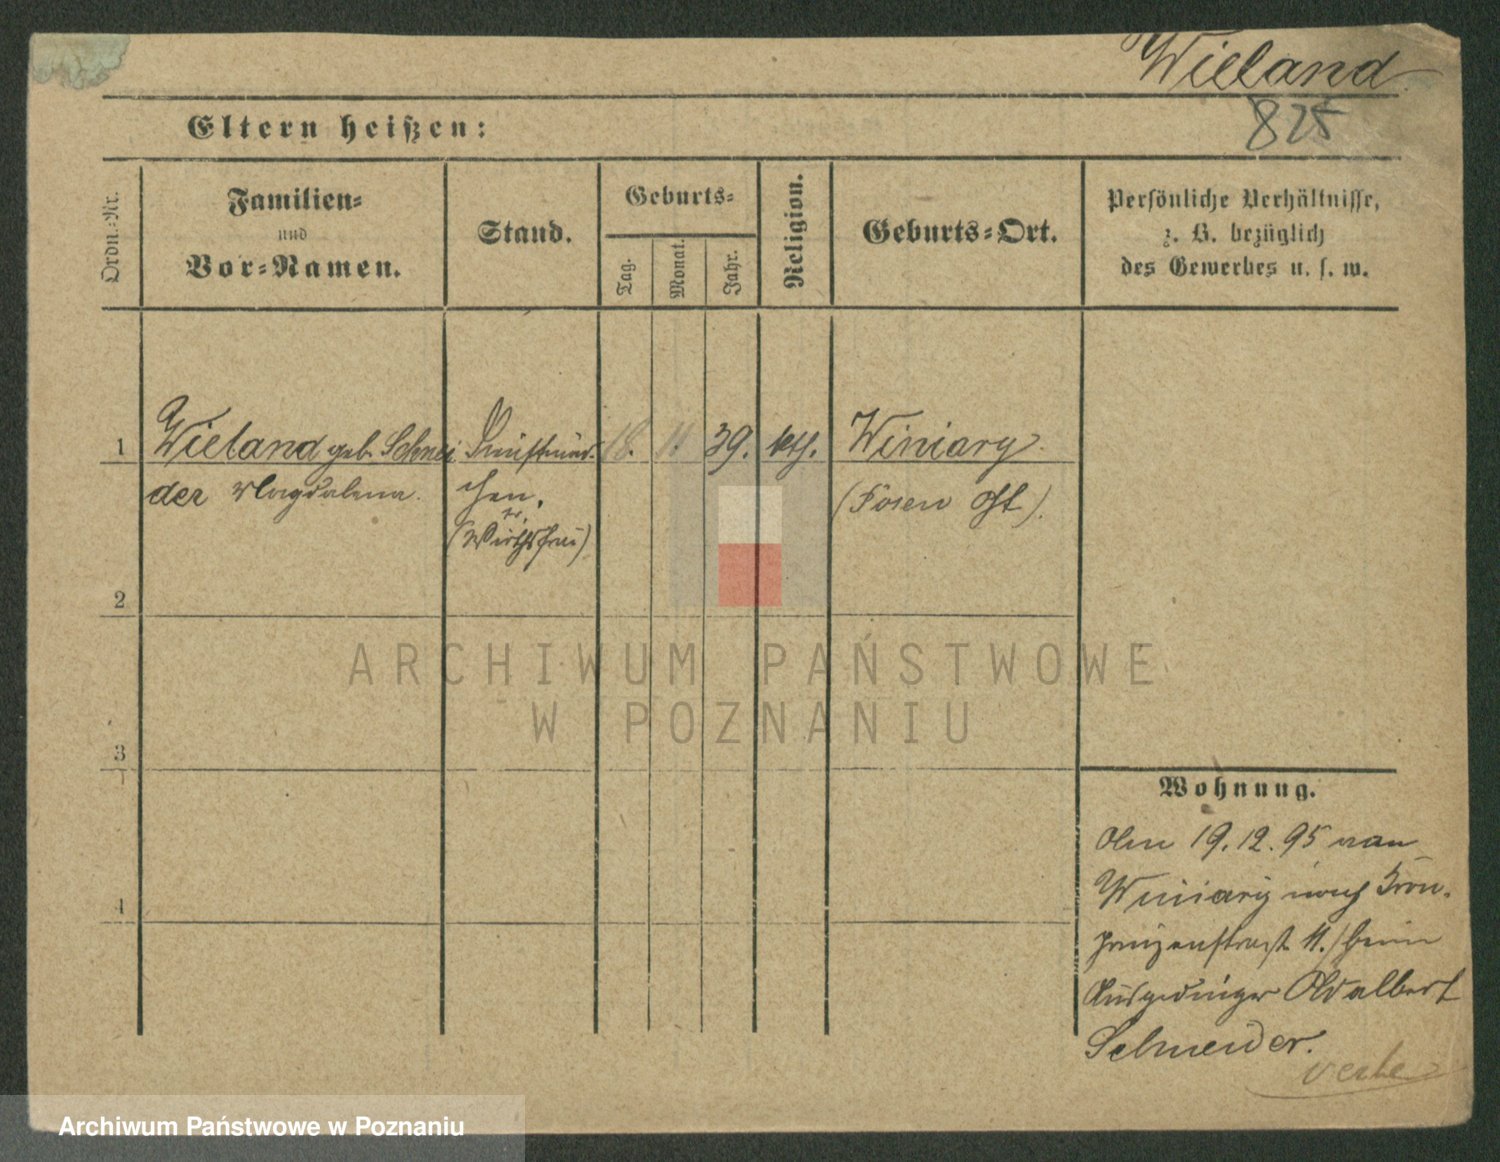 Wieland
825
Eltern heißen:
Ordn.-Nr.
Familien-
und
Vor-Namen.
Stand.
Geburts-
Tag.
Monat.
Jahr.
Religion.
Geburts-Ort.
Persönliche Verhältnisse,
z. B. bezüglich
des Gewerbes u. s. w.
1
Wieland geb. Schnei
der Magdalena.
(Wirthsfrau)
18. 11. 39. kth.
Winiary
(Posen Ost).
2
3
4
ARCHIWUM PAŃSTWOWE
W POZNANIU
Wohnung.
Am 19.12.95 von
Winiary nach Kron-
prinzenstraße 11. beim
Ausgedinger Adalbert
Schneider.
Archiwum Państwowe w Poznaniu